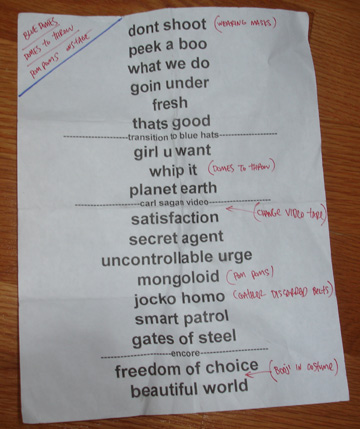 BLUE DOMES
DOMES TO THROW
POM POMS
dont shoot (WEARING MASKS)
peek a boo
what we do
goin under
fresh
thats good
transition to blue hats
girl u want
whip it (DOMES TO THROW)
planet earth
carl sagan video
satisfaction (CHANGE VIDEO TAPE)
secret agent
uncontrollable urge
mongoloid (POM POMS)
jocko homo (GATHER DISCARDED BELTS)
smart patrol
gates of steel
encore
freedom of choice
(BOOJI IN COSTUME)
beautiful world